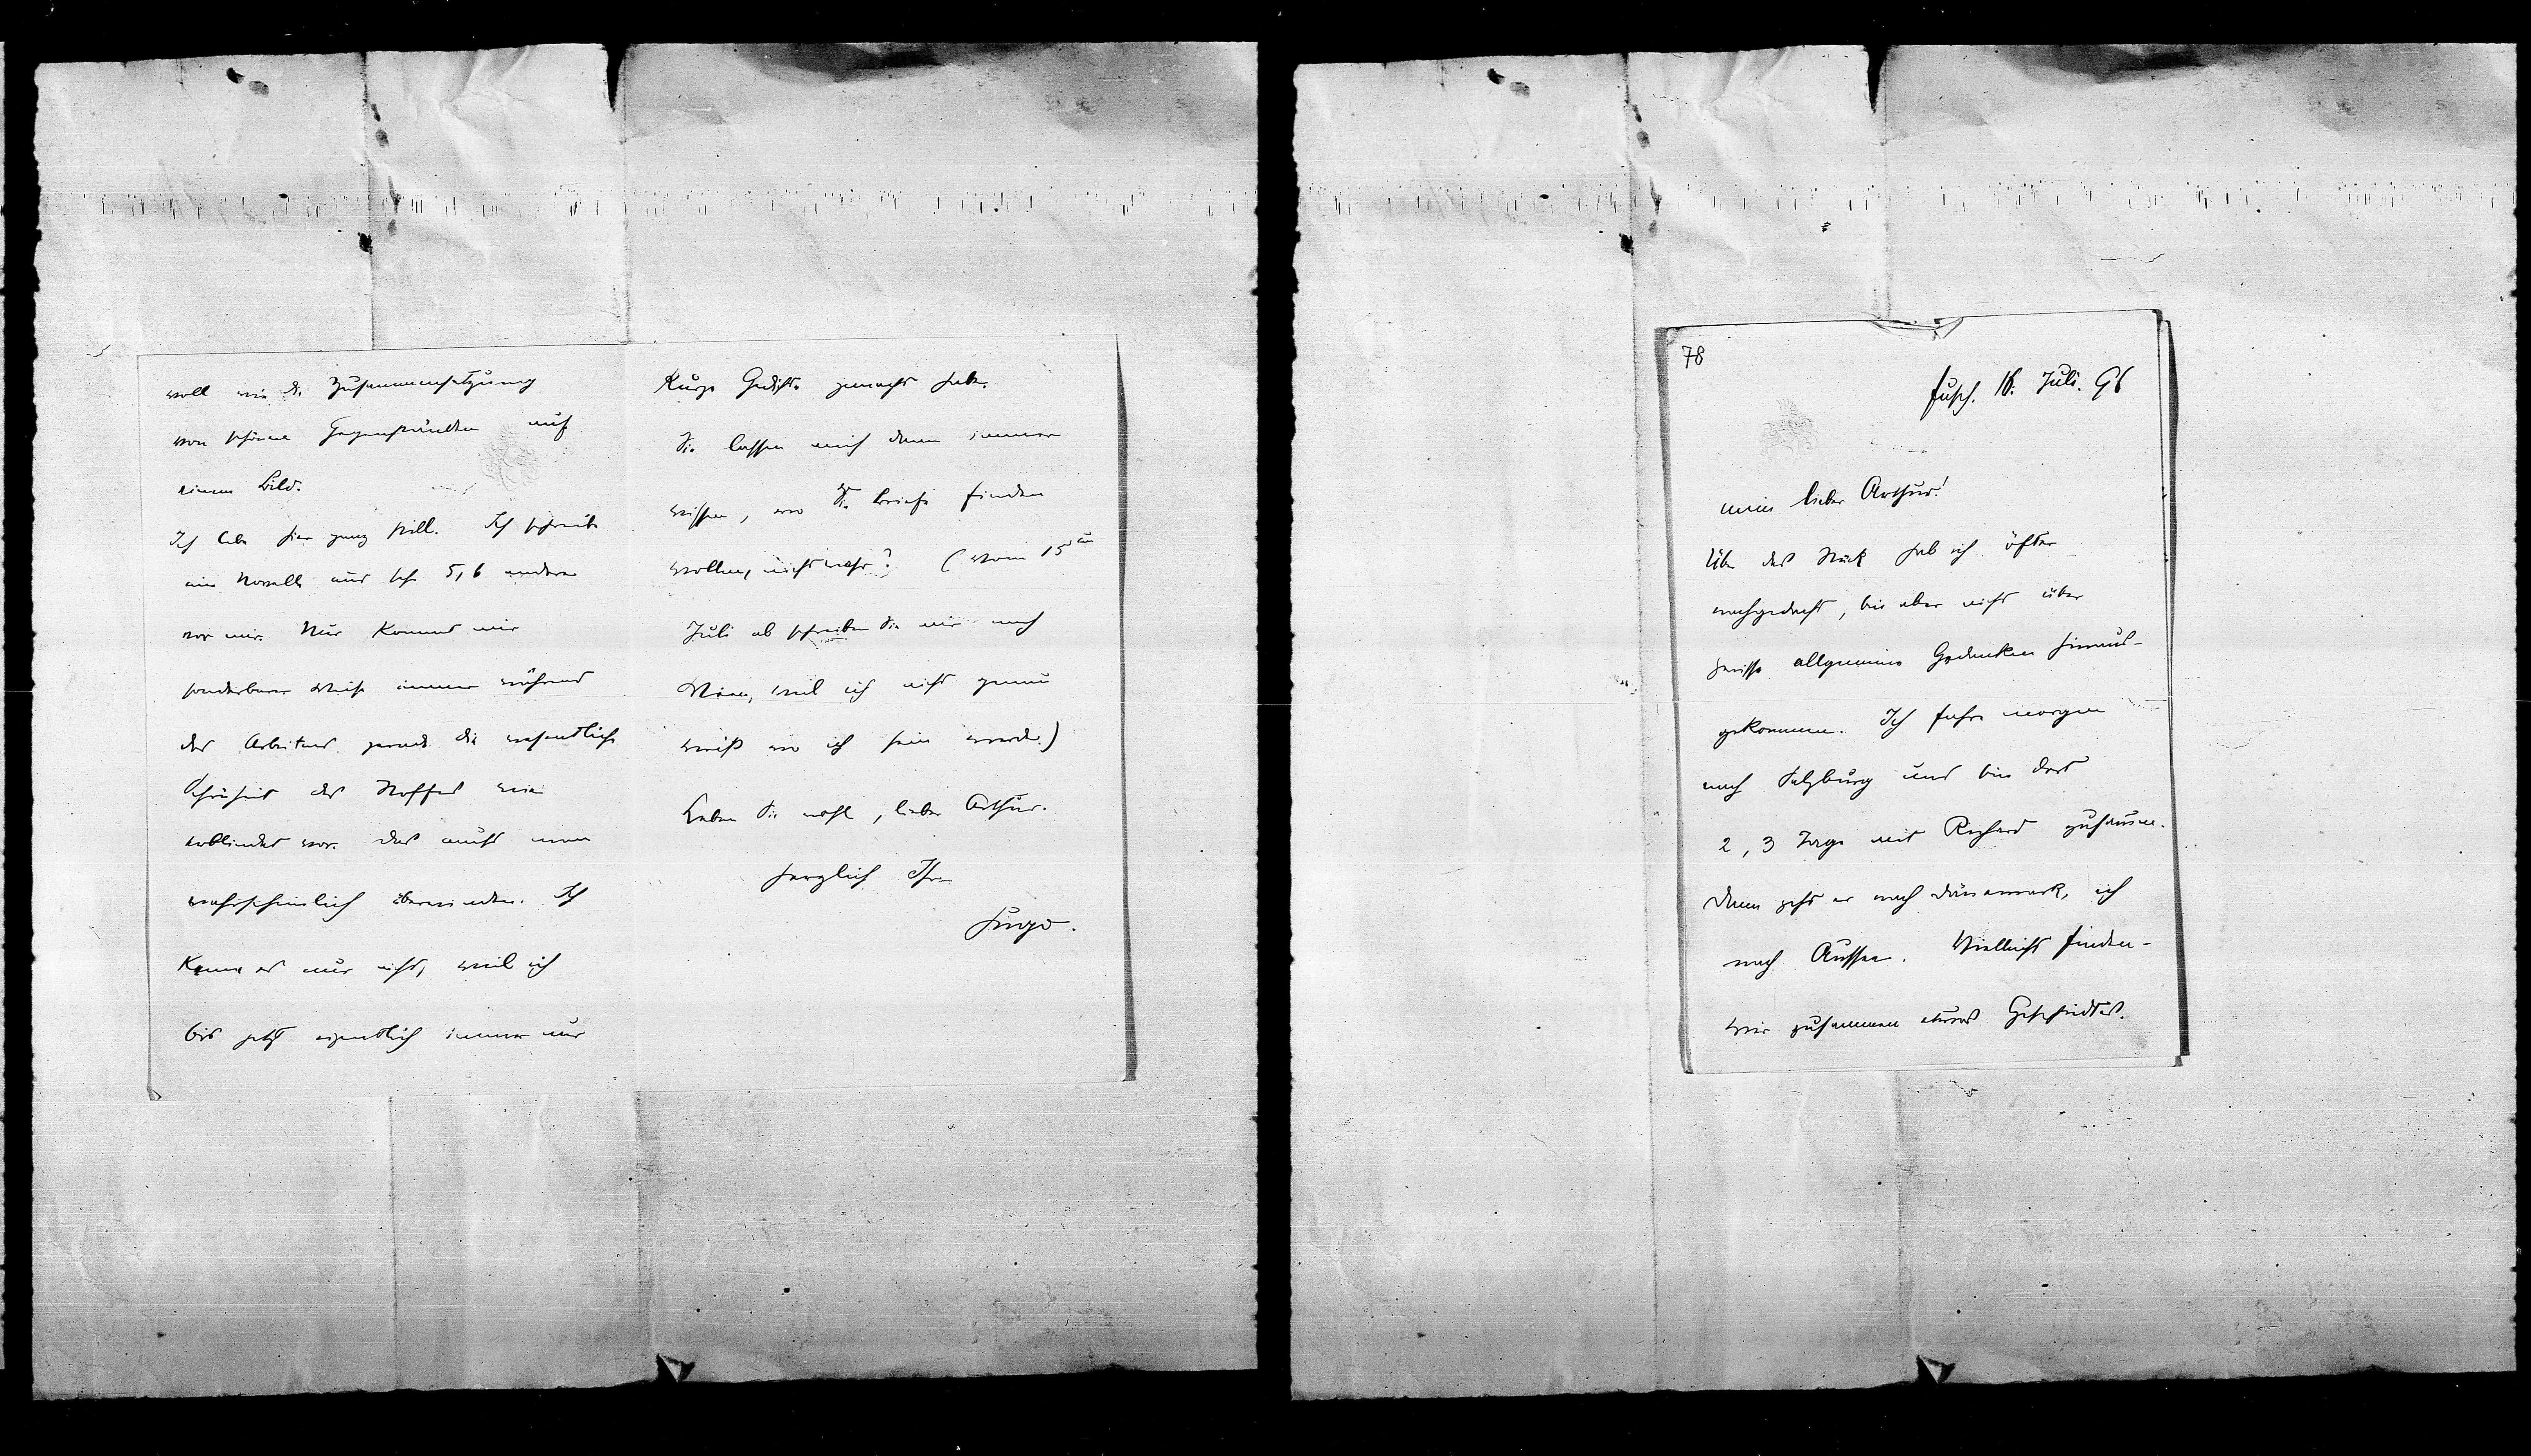 voll wie die Zusammensetzung
von schönen Gegenständen auf
einem Bild.
Ich lebe hier ganz still. Ich schreibe
eine Novelle und sehe 5, 6 andere
vor mir. Nur kommt mir
sonderbarer Weise immer während
des Arbeitens gerade die wesentliche
Schönheit des Stoffes wie
erblindet vor. Das muss man
wahrscheinlich überwinden. Ich
kenne es nur nicht, weil ich
bis jetzt eigentlich immer nur
kurze Gedichte gemacht habe.
Sie lassen mich dann immer
wissen, wo Sie Briefe finden
wollen, nicht wahr? (vom 15ten
Juli ab schreiben Sie mir nach
Wien, weil ich nicht genau
weiß wo ich sein werde.)
Leben Sie wohl, lieber Arthur.
herzlich Ihr
Hugo.
78
Fusch. Juli. 96
mein lieber Arthur!
Über das Stück hab ich öfter
nachgedacht, bin aber nicht über
gewisse allgemeine Gedanken hinaus-
gekommen. Ich fahre morgen
nach Salzburg und bin dort
2, 3 Tage mit Richard zusammen.
Dann geht er nach Dänemark, ich
nach Aussee. Vielleicht finden
wir zusammen etwas Gescheidtes.